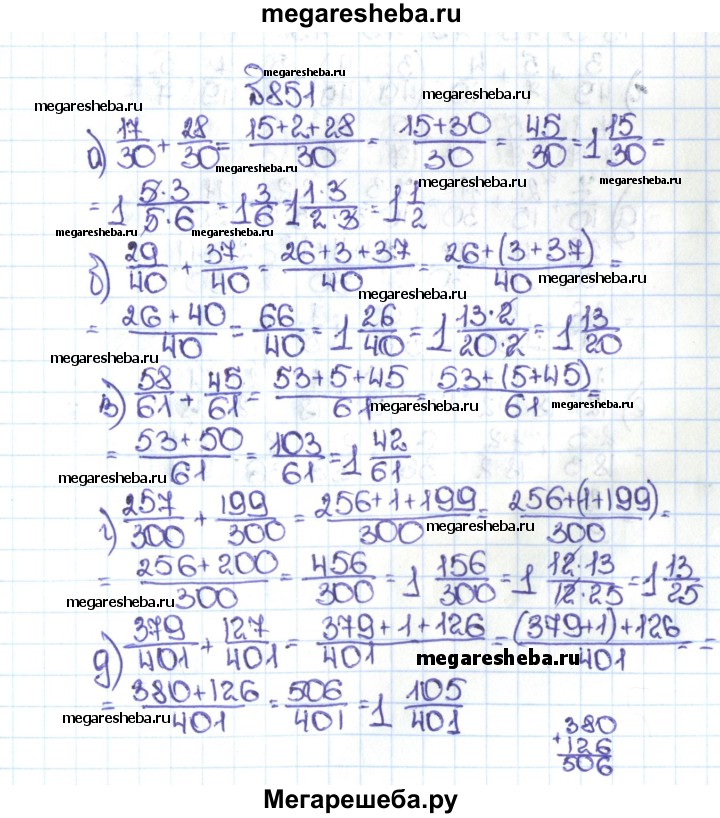 megaresheba.ru
megaresheba.ru
№851
megaresheba.ru megaresheba.ru
а) 17/30 + 28/30 = (15+2+28)/30 = (15+30)/30 = 45/30 = 1 15/30 =
megaresheba.ru
= 1 (5·3)/(5·6) = 1 3/6 = 1 (1·3)/(2·3) = 1 1/2
б) 29/40 + 37/40 = (26+3+37)/40 = (26+(3+37))/40 =
megaresheba.ru
megaresheba.ru
= (26+40)/40 = 66/40 = 1 26/40 = 1 (13·2)/(20·2) = 1 13/20
megaresheba.ru
в) 58/61 + 45/61 = (53+5+45)/61 = (53+(5+45))/61 =
megaresheba.ru megaresheba.ru
= (53+50)/61 = 103/61 = 1 42/61
megaresheba.ru
г) 257/300 + 199/300 = (256+1+199)/300 = (256+(1+199))/300 =
megaresheba.ru
= (256+200)/300 = 456/300 = 1 156/300 = 1 (12·13)/(12·25) = 1 13/25
megaresheba.ru
д) 379/401 + 127/401 = (379+1+126)/401 = ((379+1)+126)/401 = =
megaresheba.ru
= (380+126)/401 = 506/401 = 1 105/401
megaresheba.ru
380
+126
506
Мегарешеба.ру